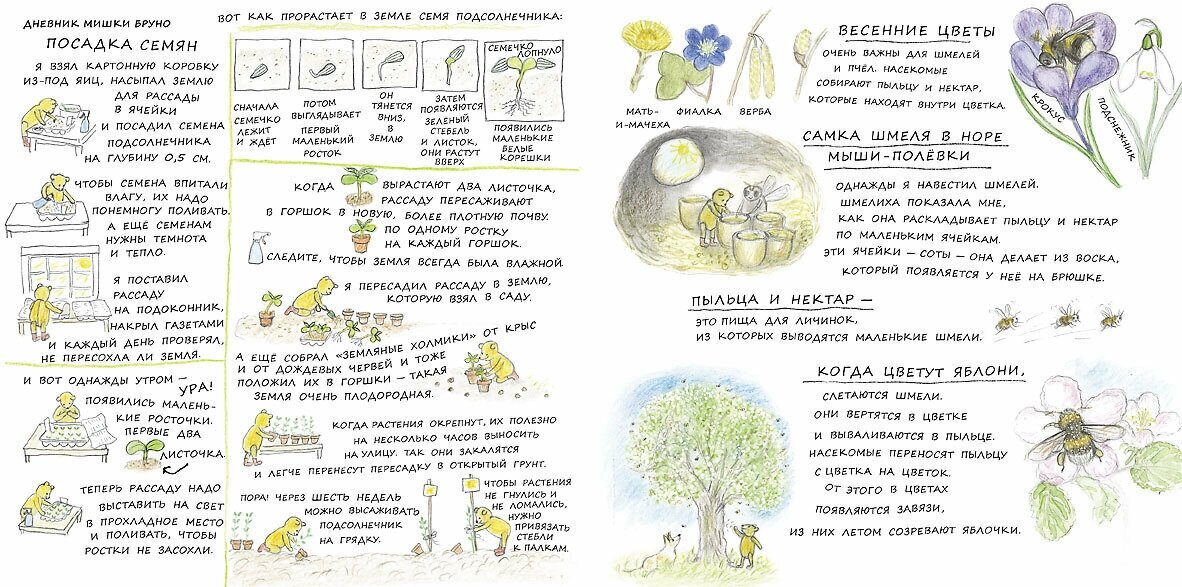 ДНЕВНИК МИШКИ БРУНО
ПОСАДКА СЕМЯН
Я ВЗЯЛ КАРТОННУЮ КОРОБКУ
ИЗ-ПОД ЯИЦ, НАСЫПАЛ ЗЕМЛЮ
ДЛЯ РАССАДЫ
В ЯЧЕЙКИ
И ПОСАДИЛ СЕМЕНА
ПОДСОЛНЕЧНИКА
НА ГЛУБИНУ 0,5 СМ.
ЧТОБЫ СЕМЕНА ВПИТАЛИ
ВЛАГУ, ИХ НАДО
ПОНЕМНОГУ ПОЛИВАТЬ.
А ЕЩЁ СЕМЕНАМ
НУЖНЫ ТЕМНОТА
И ТЕПЛО.
Я ПОСТАВИЛ
РАССАДУ
НА ПОДОКОННИК,
НАКРЫЛ ГАЗЕТАМИ
И КАЖДЫЙ ДЕНЬ ПРОВЕРЯЛ,
НЕ ПЕРЕСОХЛА ЛИ ЗЕМЛЯ.
И ВОТ ОДНАЖДЫ УТРОМ —
УРА!
ПОЯВИЛИСЬ МАЛЕНЬ-
КИЕ РОСТОЧКИ.
ПЕРВЫЕ ДВА
ЛИСТОЧКА.
ТЕПЕРЬ РАССАДУ НАДО
ВЫСТАВИТЬ НА СВЕТ
В ПРОХЛАДНОЕ МЕСТО
И ПОЛИВАТЬ, ЧТОБЫ
РОСТКИ НЕ ЗАСОХЛИ.
ВОТ КАК ПРОРАСТАЕТ В ЗЕМЛЕ СЕМЯ ПОДСОЛНЕЧНИКА:
СНАЧАЛА
СЕМЕЧКО
ЛЕЖИТ
И ЖДЁТ
ПОТОМ
ВЫГЛЯДЫВАЕТ
ПЕРВЫЙ
МАЛЕНЬКИЙ
РОСТОК
ОН
ТЯНЕТСЯ
ВНИЗ,
В
ЗЕМЛЮ
ЗАТЕМ
ПОЯВЛЯЮТСЯ
ЗЕЛЁНЫЙ
СТЕБЕЛЬ
И ЛИСТОК,
ОНИ РАСТУТ
ВВЕРХ
СЕМЕЧКО
ЛОПНУЛО
ПОЯВИЛИСЬ
МАЛЕНЬКИЕ
БЕЛЫЕ
КОРЕШКИ
КОГДА ВЫРАСТАЮТ ДВА ЛИСТОЧКА,
РАССАДУ ПЕРЕСАЖИВАЮТ
В ГОРШОК В НОВУЮ, БОЛЕЕ ПЛОТНУЮ ПОЧВУ.
ПО ОДНОМУ РОСТКУ
НА КАЖДЫЙ ГОРШОК.
СЛЕДИТЕ, ЧТОБЫ ЗЕМЛЯ ВСЕГДА БЫЛА ВЛАЖНОЙ
Я ПЕРЕСАДИЛ РАССАДУ В ЗЕМЛЮ,
КОТОРУЮ ВЗЯЛ В САДУ.
А ЕЩЁ СОБРАЛ «ЗЕМЛЯНЫЕ ХОЛМИКИ» ОТ КРЫС
И ОТ ДОЖДЕВЫХ ЧЕРВЕЙ И ТОЖЕ
ПОЛОЖИЛ ИХ В ГОРШКИ — ТАКАЯ
ЗЕМЛЯ ОЧЕНЬ ПЛОДОРОДНАЯ.
КОГДА РАСТЕНИЯ ОКРЕПНУТ, ИХ ПОЛЕЗНО
НА НЕСКОЛЬКО ЧАСОВ ВЫНОСИТЬ
НА УЛИЦУ. ТАК ОНИ ЗАКАЛЯТСЯ
И ЛЕГЧЕ ПЕРЕНЕСУТ ПЕРЕСАДКУ В ОТКРЫТЫЙ ГРУНТ.
ПОРА! ЧЕРЕЗ ШЕСТЬ НЕДЕЛЬ
МОЖНО ВЫСАЖИВАТЬ
ПОДСОЛНЕЧНИК
НА ГРЯДКУ.
ЧТОБЫ РАСТЕНИЯ
НЕ ГНУЛИСЬ И
НЕ ЛОМАЛИСЬ,
НУЖНО
ПРИВЯЗАТЬ
СТЕБЛИ
К ПАЛКАМ.
МАТЬ-
И-МАЧЕХА
ФИАЛКА
ВЕРБА
ВЕСЕННИЕ ЦВЕТЫ
ОЧЕНЬ ВАЖНЫ ДЛЯ ШМЕЛЕЙ
И ПЧЁЛ. НАСЕКОМЫЕ
СОБИРАЮТ ПЫЛЬЦУ И НЕКТАР,
КОТОРЫЕ НАХОДЯТ ВНУТРИ ЦВЕТКА.
КРОКУС
ПОДСНЕЖНИК
САМКА ШМЕЛЯ В НОРЕ
МЫШИ-ПОЛЁВКИ
ОДНАЖДЫ Я НАВЕСТИЛ ШМЕЛЕЙ.
ШМЕЛИХА ПОКАЗАЛА МНЕ,
КАК ОНА РАСКЛАДЫВАЕТ ПЫЛЬЦУ И НЕКТАР
ПО МАЛЕНЬКИМ ЯЧЕЙКАМ.
ЭТИ ЯЧЕЙКИ — СОТЫ — ОНА ДЕЛАЕТ ИЗ ВОСКА,
КОТОРЫЙ ПОЯВЛЯЕТСЯ У НЕЁ НА БРЮШКЕ.
ПЫЛЬЦА И НЕКТАР —
ЭТО ПИЩА ДЛЯ ЛИЧИНОК,
ИЗ КОТОРЫХ ВЫВОДЯТСЯ МАЛЕНЬКИЕ ШМЕЛИ.
КОГДА ЦВЕТУТ ЯБЛОНИ,
СЛЕТАЮТСЯ ШМЕЛИ.
ОНИ ВЕРТЯТСЯ В ЦВЕТКЕ
И ВЫВАЛИВАЮТСЯ В ПЫЛЬЦЕ.
НАСЕКОМЫЕ ПЕРЕНОСЯТ ПЫЛЬЦУ
С ЦВЕТКА НА ЦВЕТОК.
ОТ ЭТОГО В ЦВЕТАХ
ПОЯВЛЯЮТСЯ ЗАВЯЗИ,
ИЗ НИХ ЛЕТОМ СОЗРЕВАЮТ ЯБЛОЧКИ.